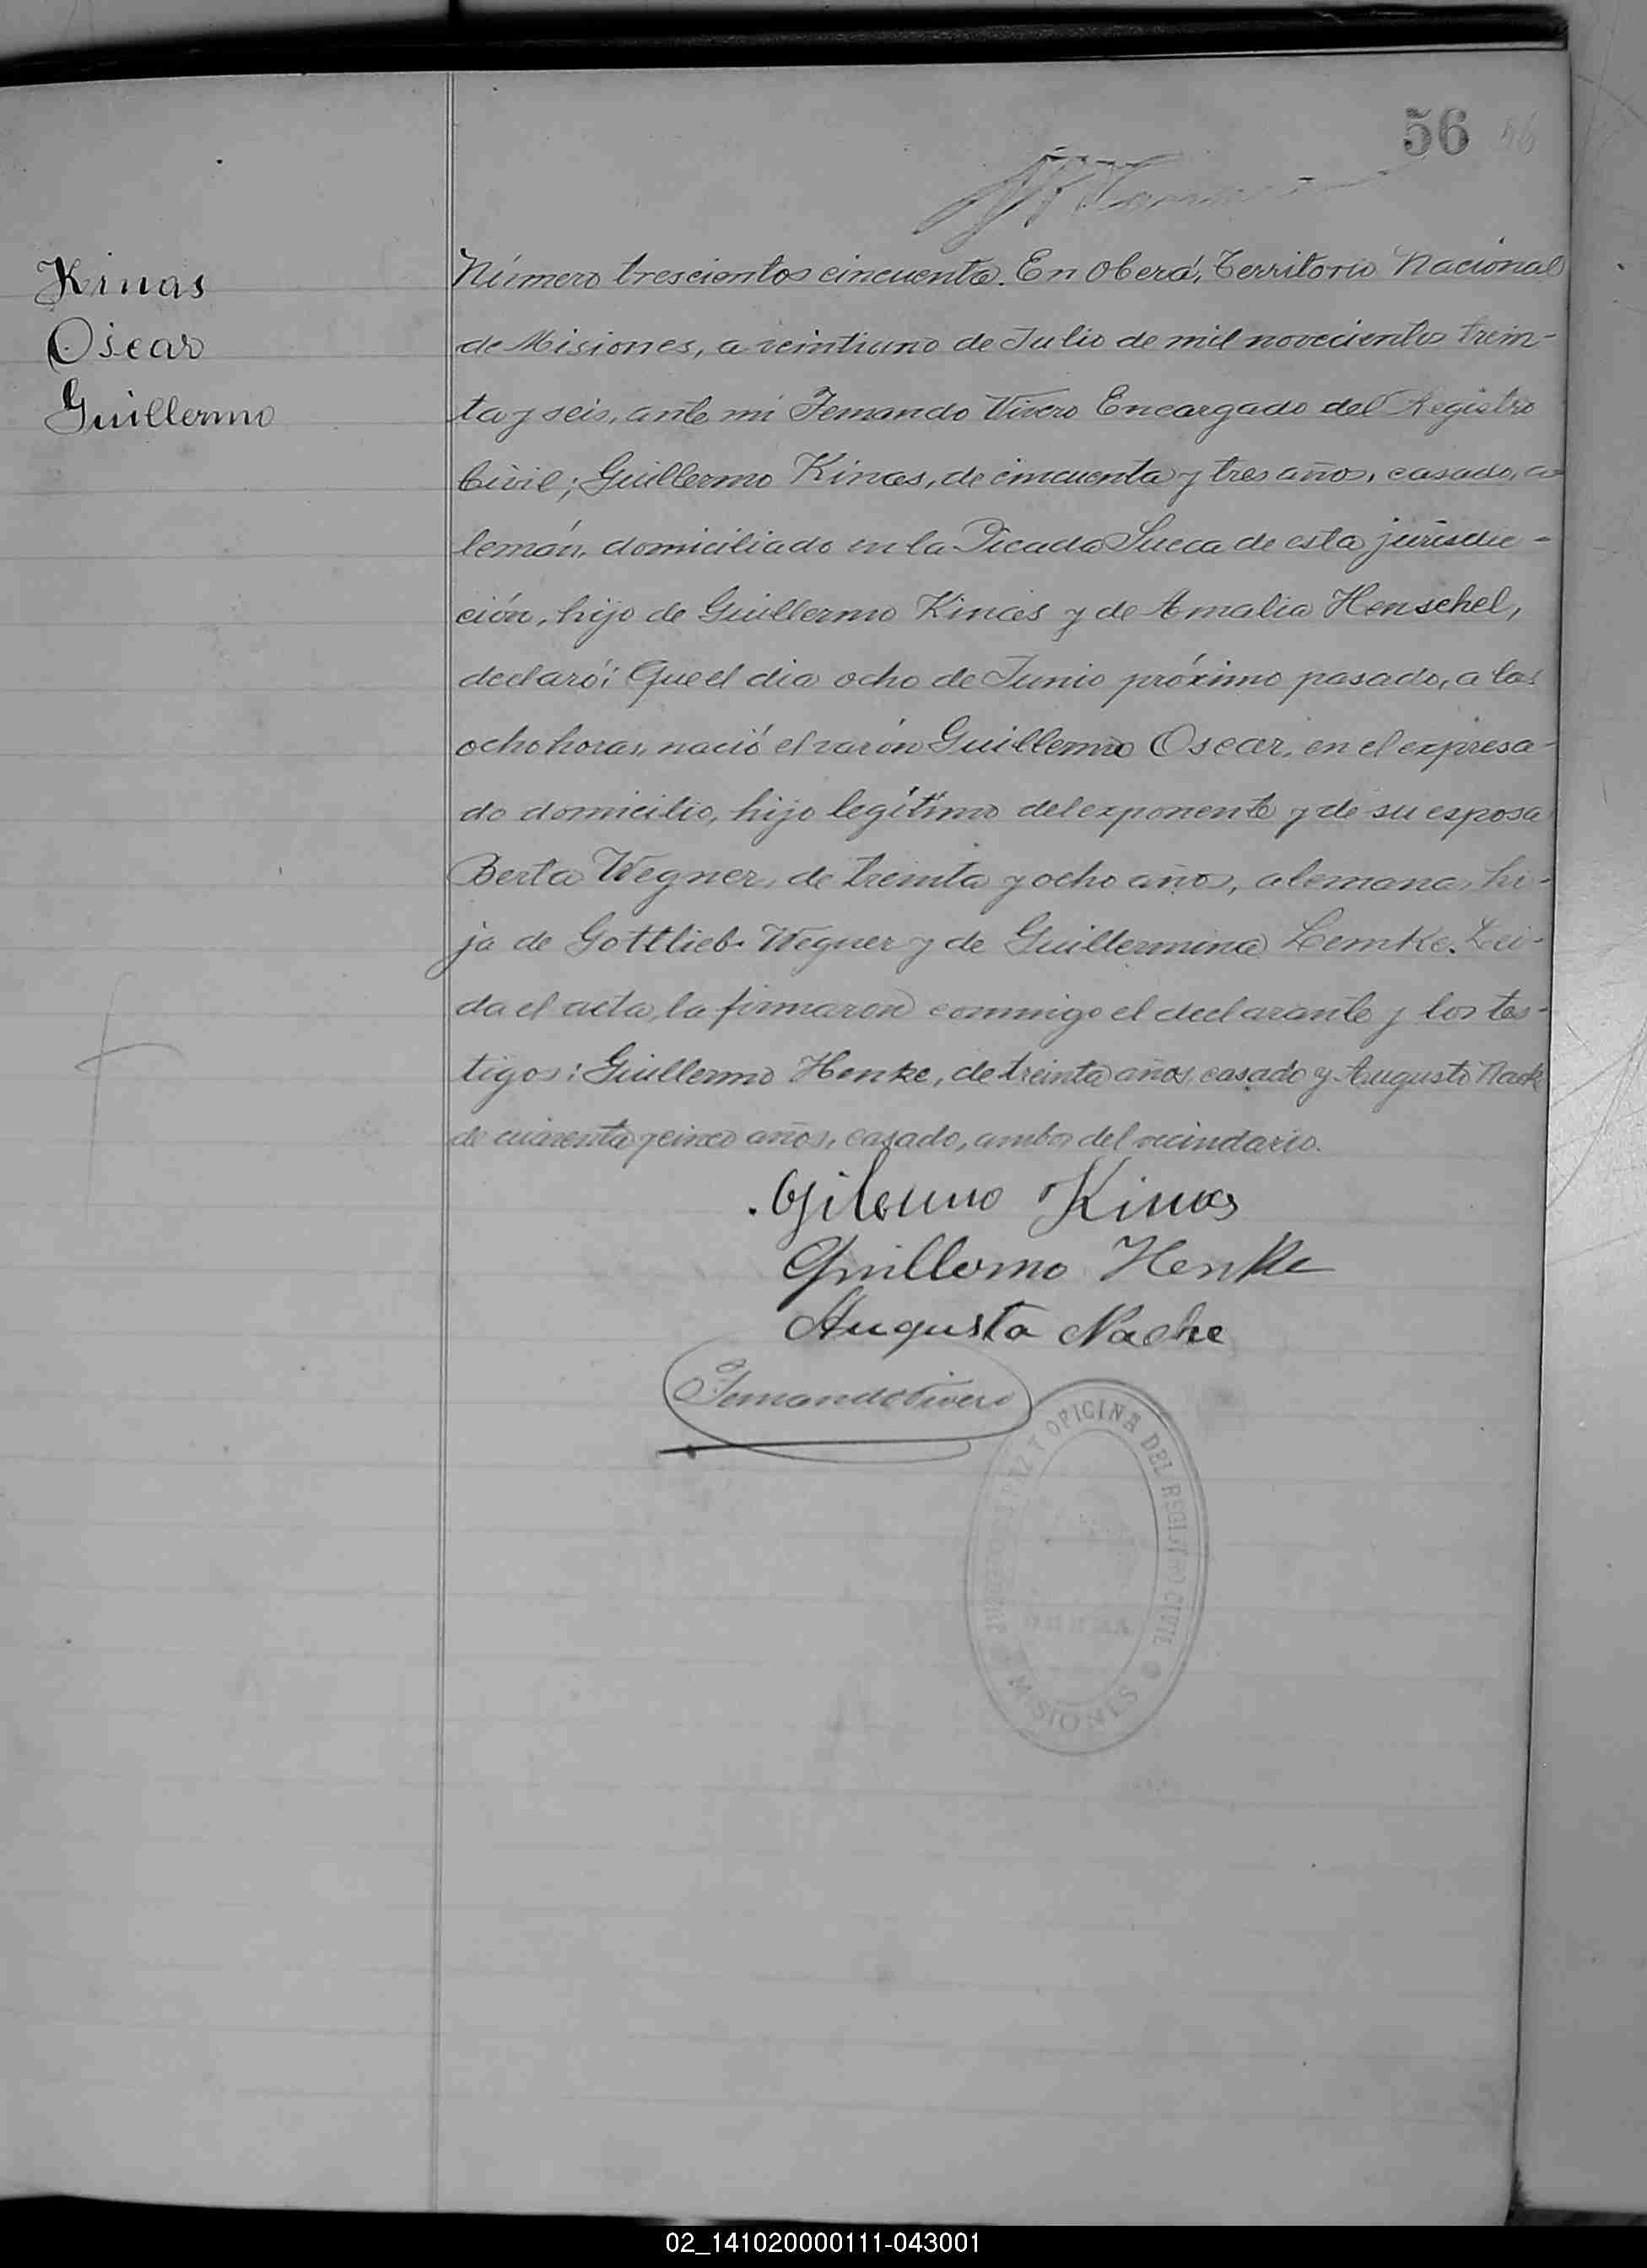 56 56
Kinas
Oscar
Guillermo
Número trescientos cincuenta. En Oberá, Territorio Nacional
de Misiones, a veintiuno de Julio de mil novecientos trein-
ta y seis, ante mí Fernando Vivero Encargado del Registro
Civil; Guillermo Kinas, de cincuenta y tres años, casado, a-
lemán, domiciliado en la Picada Sueca de esta jurisdic-
ción, hijo de Guillermo Kinas y de Amalia Henschel,
declaró: Que el dia ocho de Junio próximo pasado, a las
ocho horas, nació el varón Guillermo Oscar, en el expresa-
do domicilio, hijo legítimo del exponente y de su esposa
Berta Wegner, de treinta y ocho años, alemana, hi-
ja de Gottlieb Wegner y de Guillermina Lemke. Leí-
da el acta, la firmaron conmigo el declarante y los tes-
tigos: Guillermo Henke, de treinta años, casado y Augusto Nack
de cuarenta y cinco años, casado, ambos del vecindario.
Gilermo Kinas
Guillermo Henke
Augusta Nacke
Fernando Vivero
PAZ Y OFICINA DEL REGISTRO CIVIL
MISIONES
02_141020000111-043001